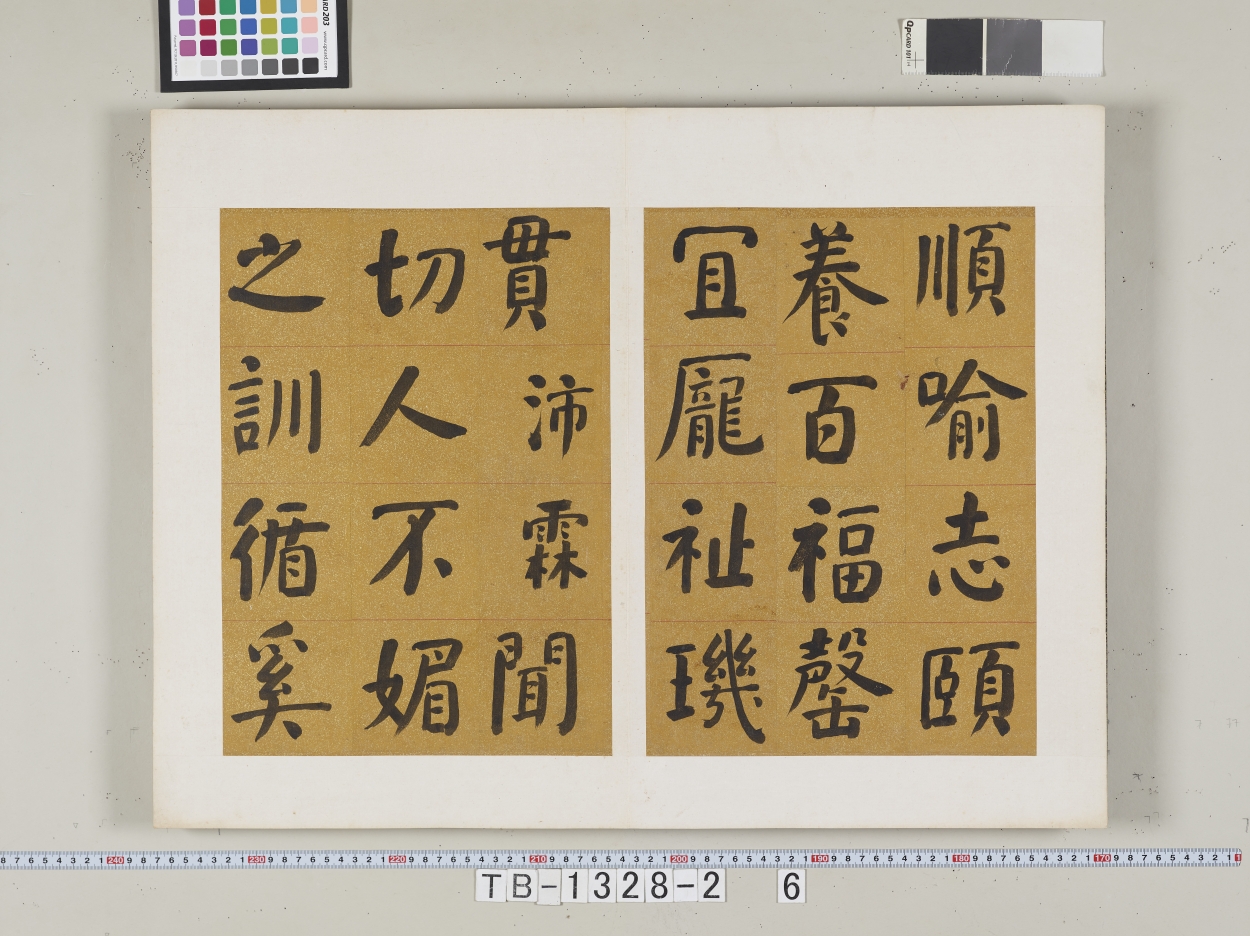 順喻志頤
養百福罄
冝龐祉璣
貫沛霖聞
切人不媚
之訓循奚
TB-1328-2 6